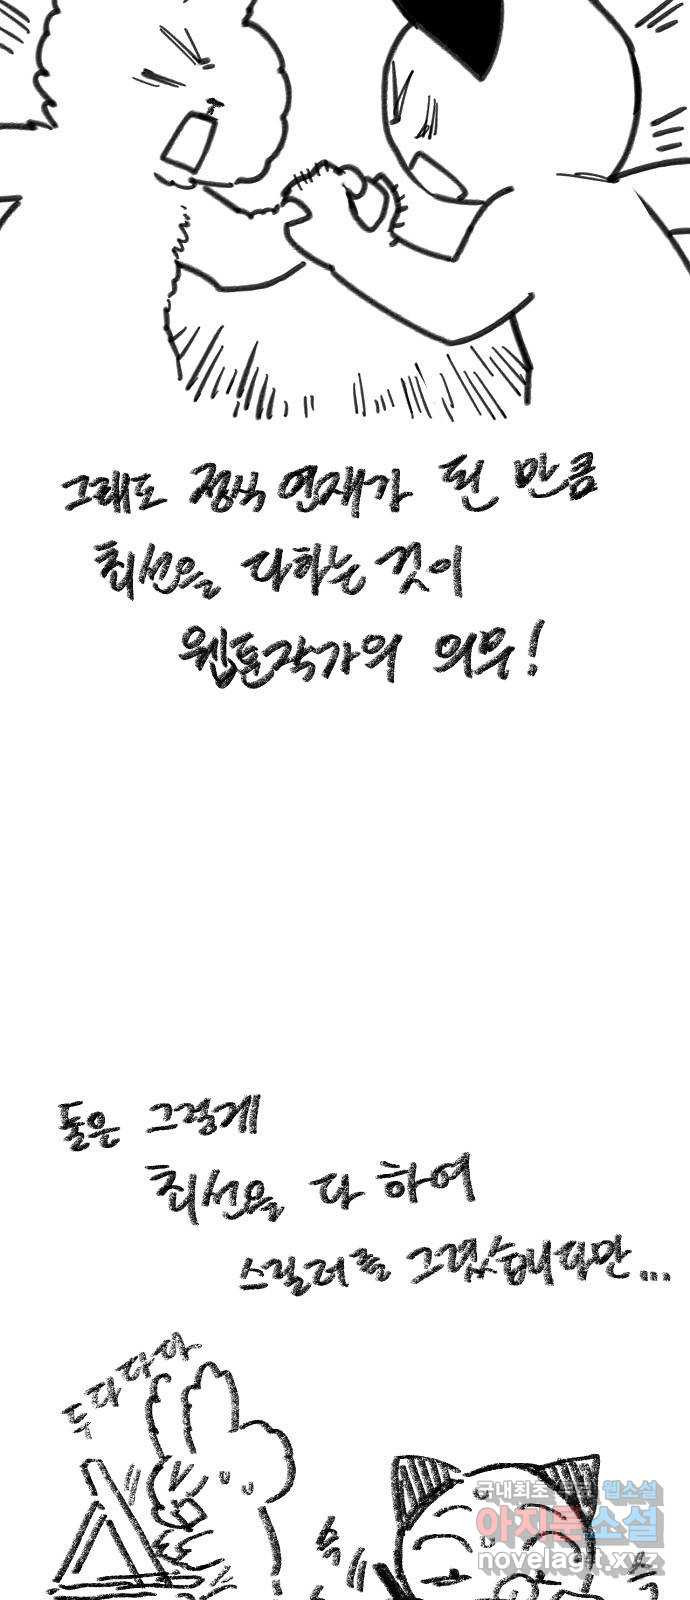 그래도 정식 연재가 된 만큼
최선을 다하는 것이
웹툰작가의 의무!
둘은 그렇게
최선을 다 하여
스릴러를 그렸습니다만...
두다다다
슥
슥
국내최초 웹소설
아지툰소설
novelagit.xyz